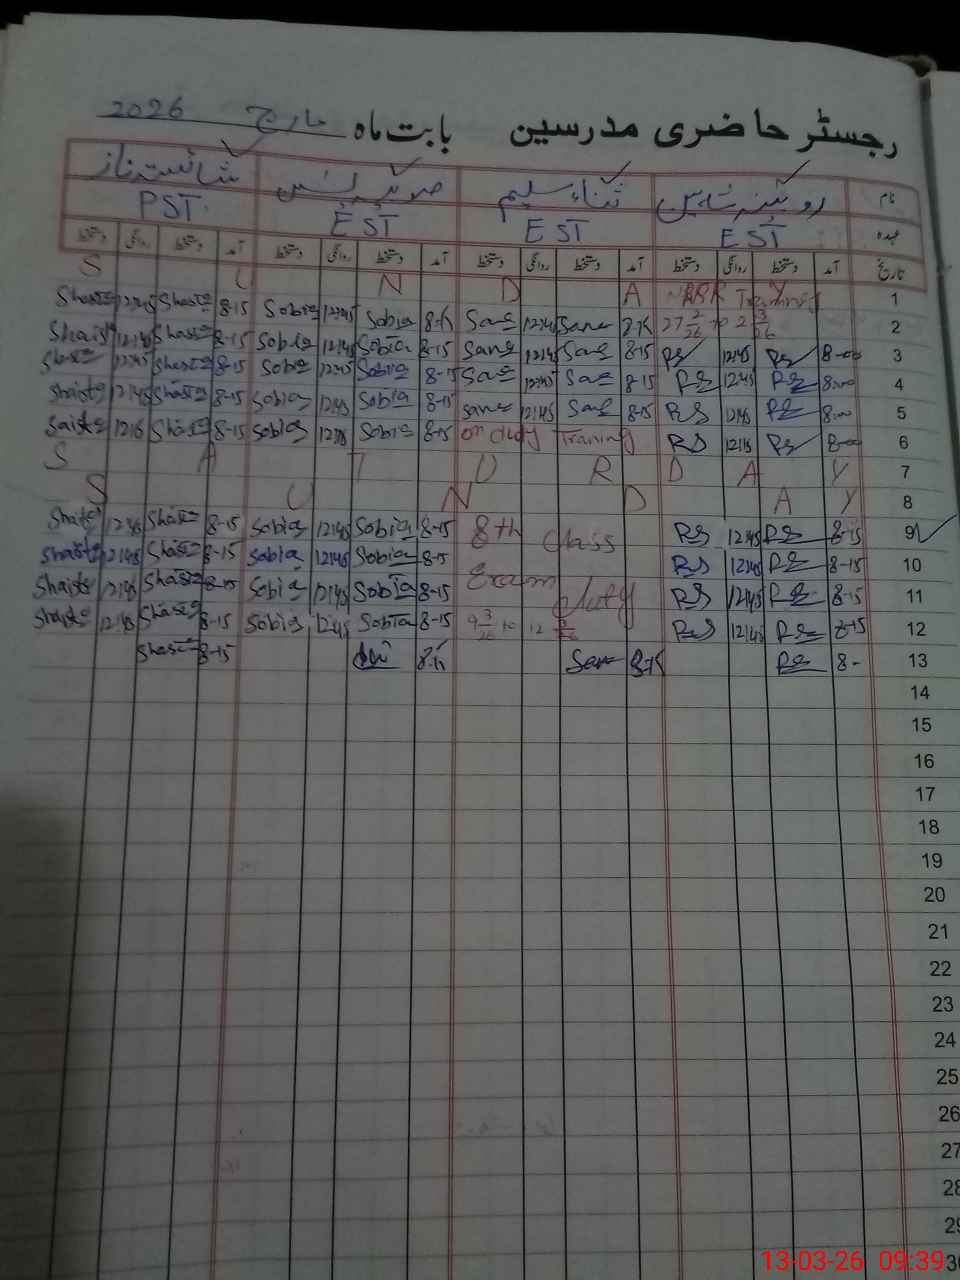 رجسٹر حاضری مدرسین بابت ماہ مارچ 2026
نام روبینہ شاہین ثناء سلیم صوبیہ شائستہ ناز
عہدہ EST EST EST PST
تاریخ آمد دستخط روانگی دستخط آمد دستخط روانگی دستخط آمد دستخط روانگی دستخط آمد دستخط روانگی دستخط
S U N D A Y 1
Shaista 12:45 Shaista 8-15 Sobia 12:45 Sobia 8-15 Sana 12:45 Sana 8-15 27 2/26 to 2 3/26 Training 2
Shaista 12:45 Shaista 8-15 Sobia 12:45 Sobia 8-15 Sana 12:45 Sana 8-15 RS 12:45 RS 8-00 3
Shaista 12:45 Shaista 8-15 Sobia 12:45 Sobia 8-15 Sana 12:45 Sana 8-15 RS 12:45 RS 8:00 4
Shaista 12:45 Shaista 8-15 Sobia 12:45 Sobia 8-15 Sana 12:45 Sana 8-15 RS 12:45 RS 8:00 5
Shaista Shaista 8-15 Sobia Sobia 8-15 on duty Training RS 12:15 RS 8-00 6
S A T U R D A Y 7
S U N D A Y 8
Shaista 12:45 Shaista 8-15 Sobia 12:45 Sobia 8-15 8th class RS 12:45 RS 8-15 9
Shaista 12:45 Shaista 8-15 Sobia 12:45 Sobia 8-15 RS 12:45 RS 8-15 10
Shaista 12:45 Shaista 8-15 Sobia 12:45 Sobia 8-15 Exam duty RS 12:45 RS 8-15 11
Shaista 12:45 Shaista 8-15 Sobia 12:45 Sobia 8-15 9 3/26 to 12 3/26 RS 12:45 RS 8-15 12
Shaista 8-15 8-15 Sana 8-15 RS 8- 13
14
15
16
17
18
19
20
21
22
23
24
25
26
27
28
29
30
13-03-26 09:39